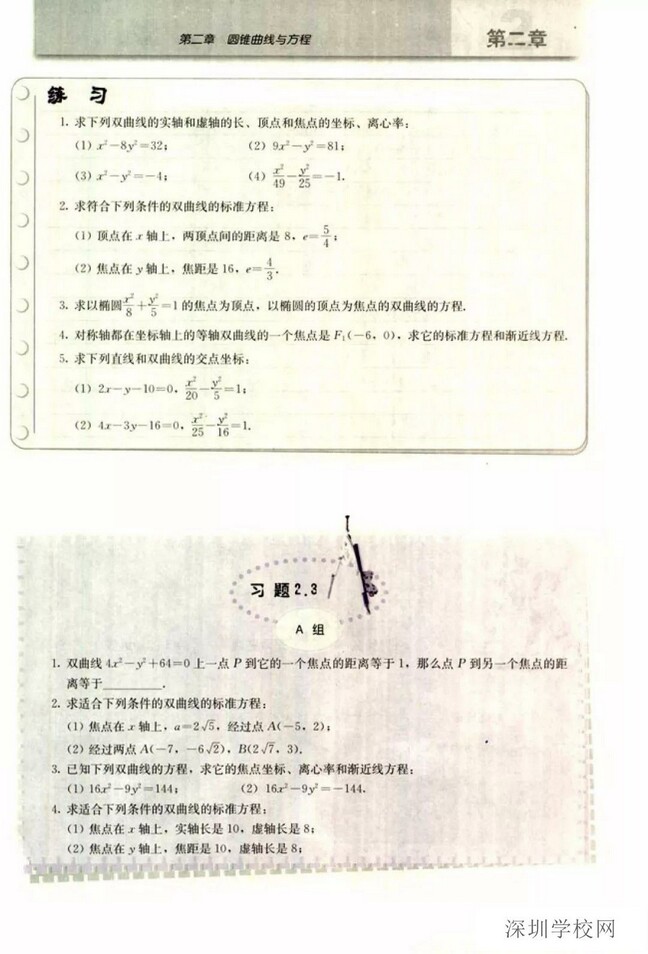 第二章 圆锥曲线与方程
第二章
练 习
1. 求下列双曲线的实轴和虚轴的长、顶点和焦点的坐标、离心率:
(1) x²-8y²=32; (2) 9x²-y²=81;
(3) x²-y²=-4; (4) x²/49-y²/25=-1.
2. 求符合下列条件的双曲线的标准方程:
(1) 顶点在 x 轴上, 两顶点间的距离是 8, e=5/4;
(2) 焦点在 y 轴上, 焦距是 16, e=4/3.
3. 求以椭圆 x²/8+y²/5=1 的焦点为顶点, 以椭圆的顶点为焦点的双曲线的方程.
4. 对称轴都在坐标轴上的等轴双曲线的一个焦点是 F₁(-6, 0), 求它的标准方程和渐近线方程.
5. 求下列直线和双曲线的交点坐标:
(1) 2x-y-10=0, x²/20-y²/5=1;
(2) 4x-3y-16=0, x²/25-y²/16=1.
习题2.3
A 组
1. 双曲线 4x²-y²+64=0 上一点 P 到它的一个焦点的距离等于 1, 那么点 P 到另一个焦点的距
离等于________.
2. 求适合下列条件的双曲线的标准方程:
(1) 焦点在 x 轴上, a=2√5, 经过点 A(-5, 2);
(2) 经过两点 A(-7, -6√2), B(2√7, 3).
3. 已知下列双曲线的方程, 求它的焦点坐标、离心率和渐近线方程:
(1) 16x²-9y²=144; (2) 16x²-9y²=-144.
4. 求适合下列条件的双曲线的标准方程:
(1) 焦点在 x 轴上, 实轴长是 10, 虚轴长是 8;
(2) 焦点在 y 轴上, 焦距是 10, 虚轴长是 8;
深圳学校网